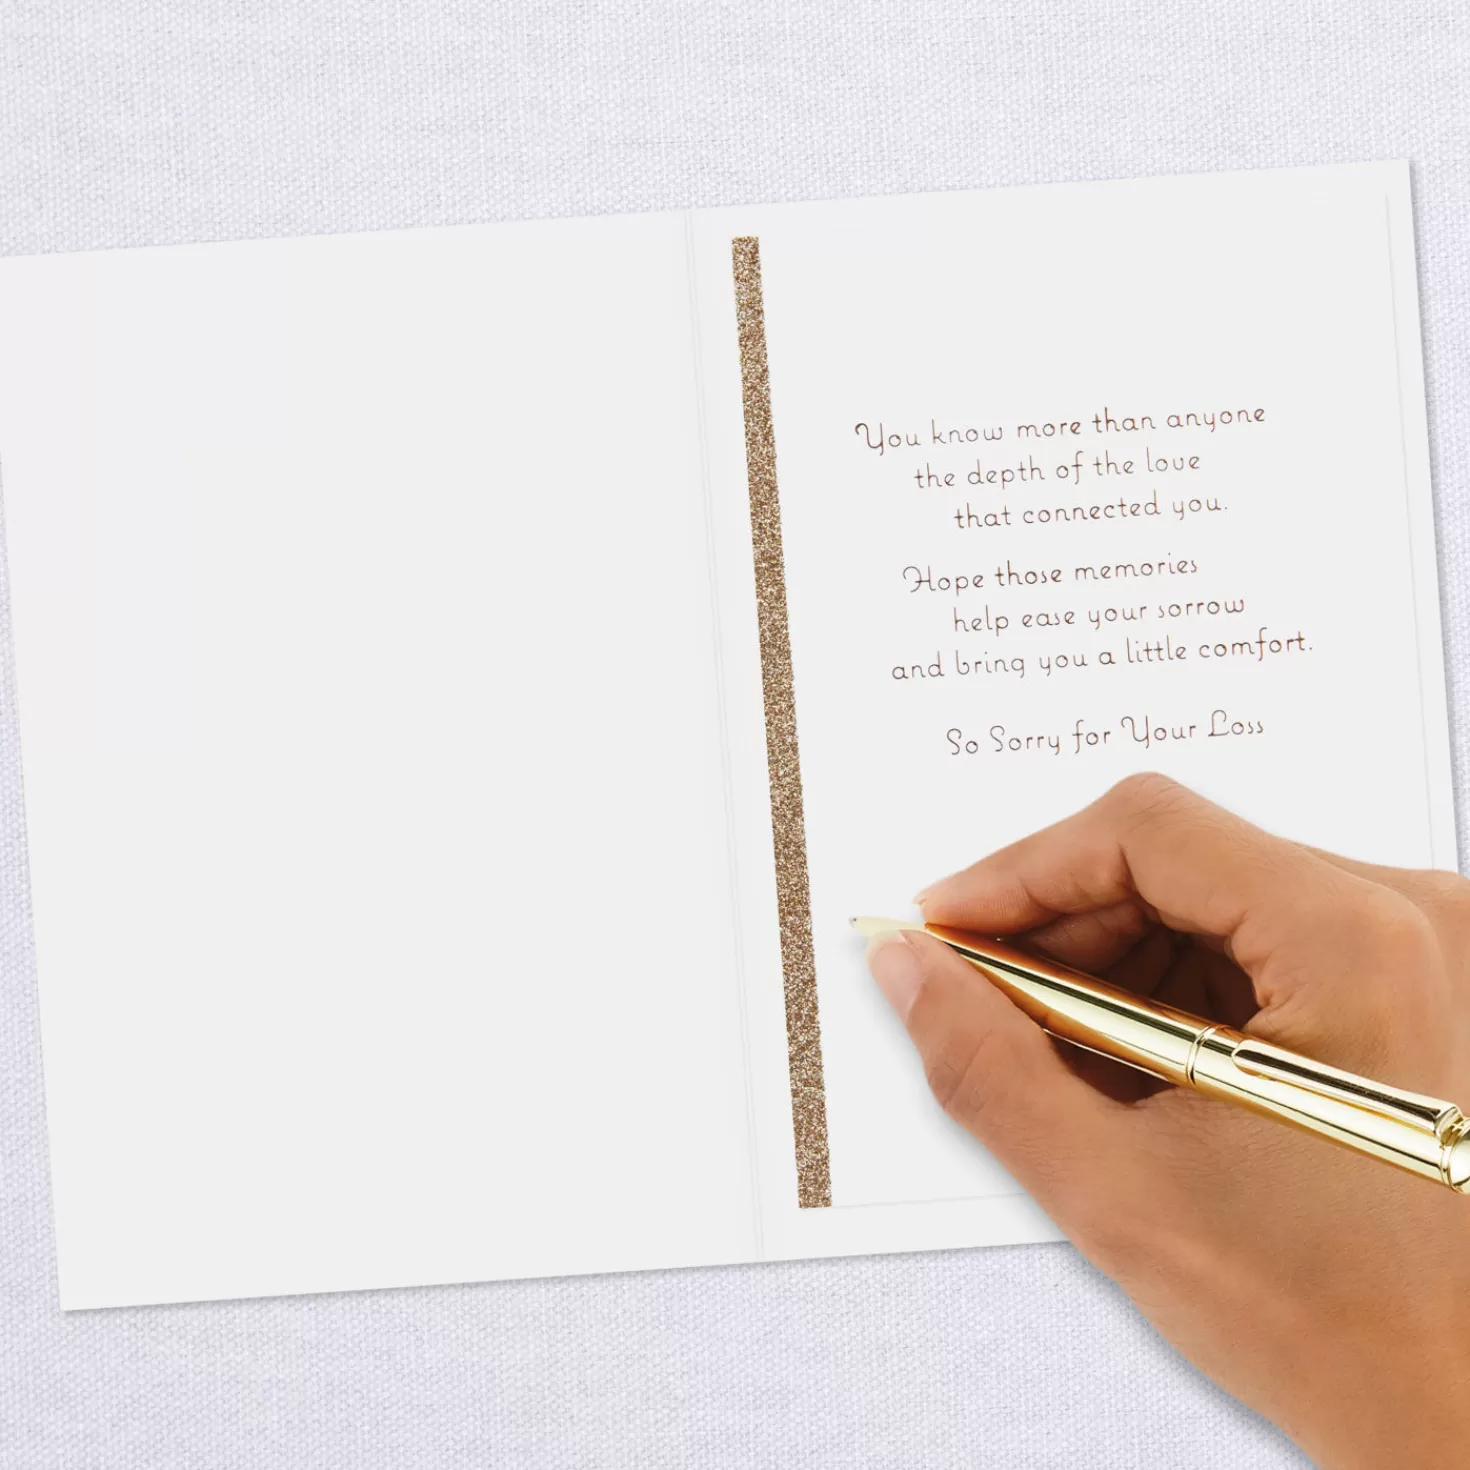 You know more than anyone
the depth of the love
that connected you.
Hope those memories
help ease your sorrow
and bring you a little comfort.
So Sorry for Your Loss